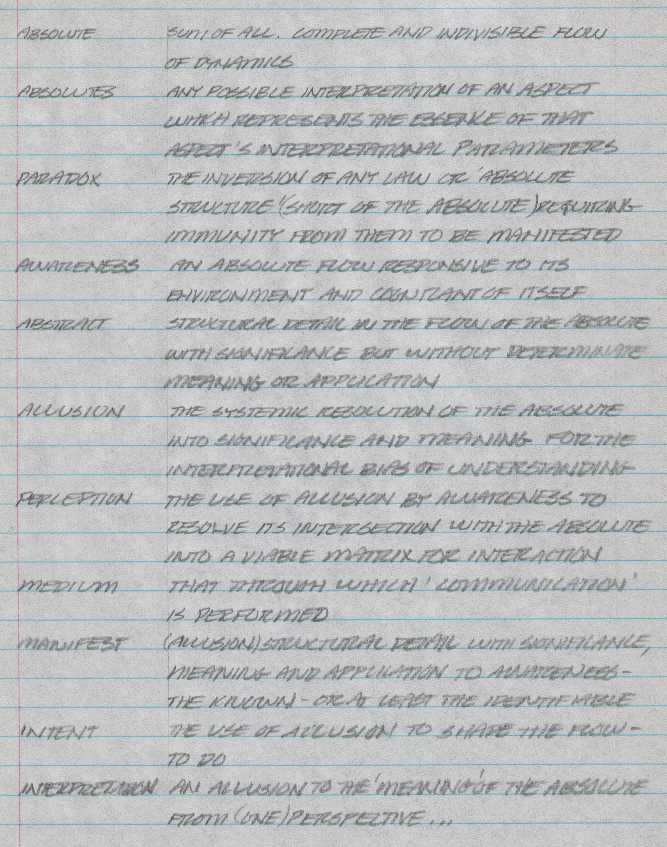 ABSOLUTE SUM OF ALL. COMPLETE AND INDIVISIBLE FLOW
OF DYNAMICS
ABSOLUTES ANY POSSIBLE INTERPRETATION OF AN ASPECT
WHICH REPRESENTS THE ESSENCE OF THAT
ASPECT'S INTERPRETATIONAL PARAMETERS
PARADOX THE INVERSION OF ANY LAW OR 'ABSOLUTE
STRUCTURE' (SHORT OF THE ABSOLUTE) REQUIRING
IMMUNITY FROM THEM TO BE MANIFESTED
AWARENESS AN ABSOLUTE FLOW RESPONSIVE TO ITS
ENVIRONMENT AND COGNIZANT OF ITSELF
ABSTRACT STRUCTURAL DETAIL IN THE FLOW OF THE ABSOLUTE
WITH SIGNIFICANCE BUT WITHOUT DETERMINATE
MEANING OR APPLICATION
ALLUSION THE SYSTEMIC RESOLUTION OF THE ABSOLUTE
INTO SIGNIFICANCE AND MEANING FOR THE
INTERPRETATIONAL BIAS OF UNDERSTANDING
PERCEPTION THE USE OF ALLUSION BY AWARENESS TO
RESOLVE ITS INTERSECTION WITH THE ABSOLUTE
INTO A VIABLE MATRIX FOR INTERACTION
MEDIUM THAT THROUGH WHICH 'COMMUNICATION'
IS PERFORMED
MANIFEST (ALLUSION) STRUCTURAL DETAIL WITH SIGNIFICANCE,
MEANING AND APPLICATION TO AWARENESS -
THE KNOWN - OR AT LEAST THE IDENTIFIABLE
INTENT THE USE OF ALLUSION TO SHAPE THE FLOW -
TO DO
INTERPRETATION AN ALLUSION TO THE 'MEANING' OF THE ABSOLUTE
FROM (ONE) PERSPECTIVE...